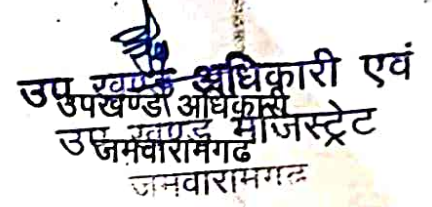 उप खण्ड अधिकारी एवं
उपखण्ड अधिकारी
उप खण्ड मजिस्ट्रेट
जमवारामगढ
जमवारामगढ